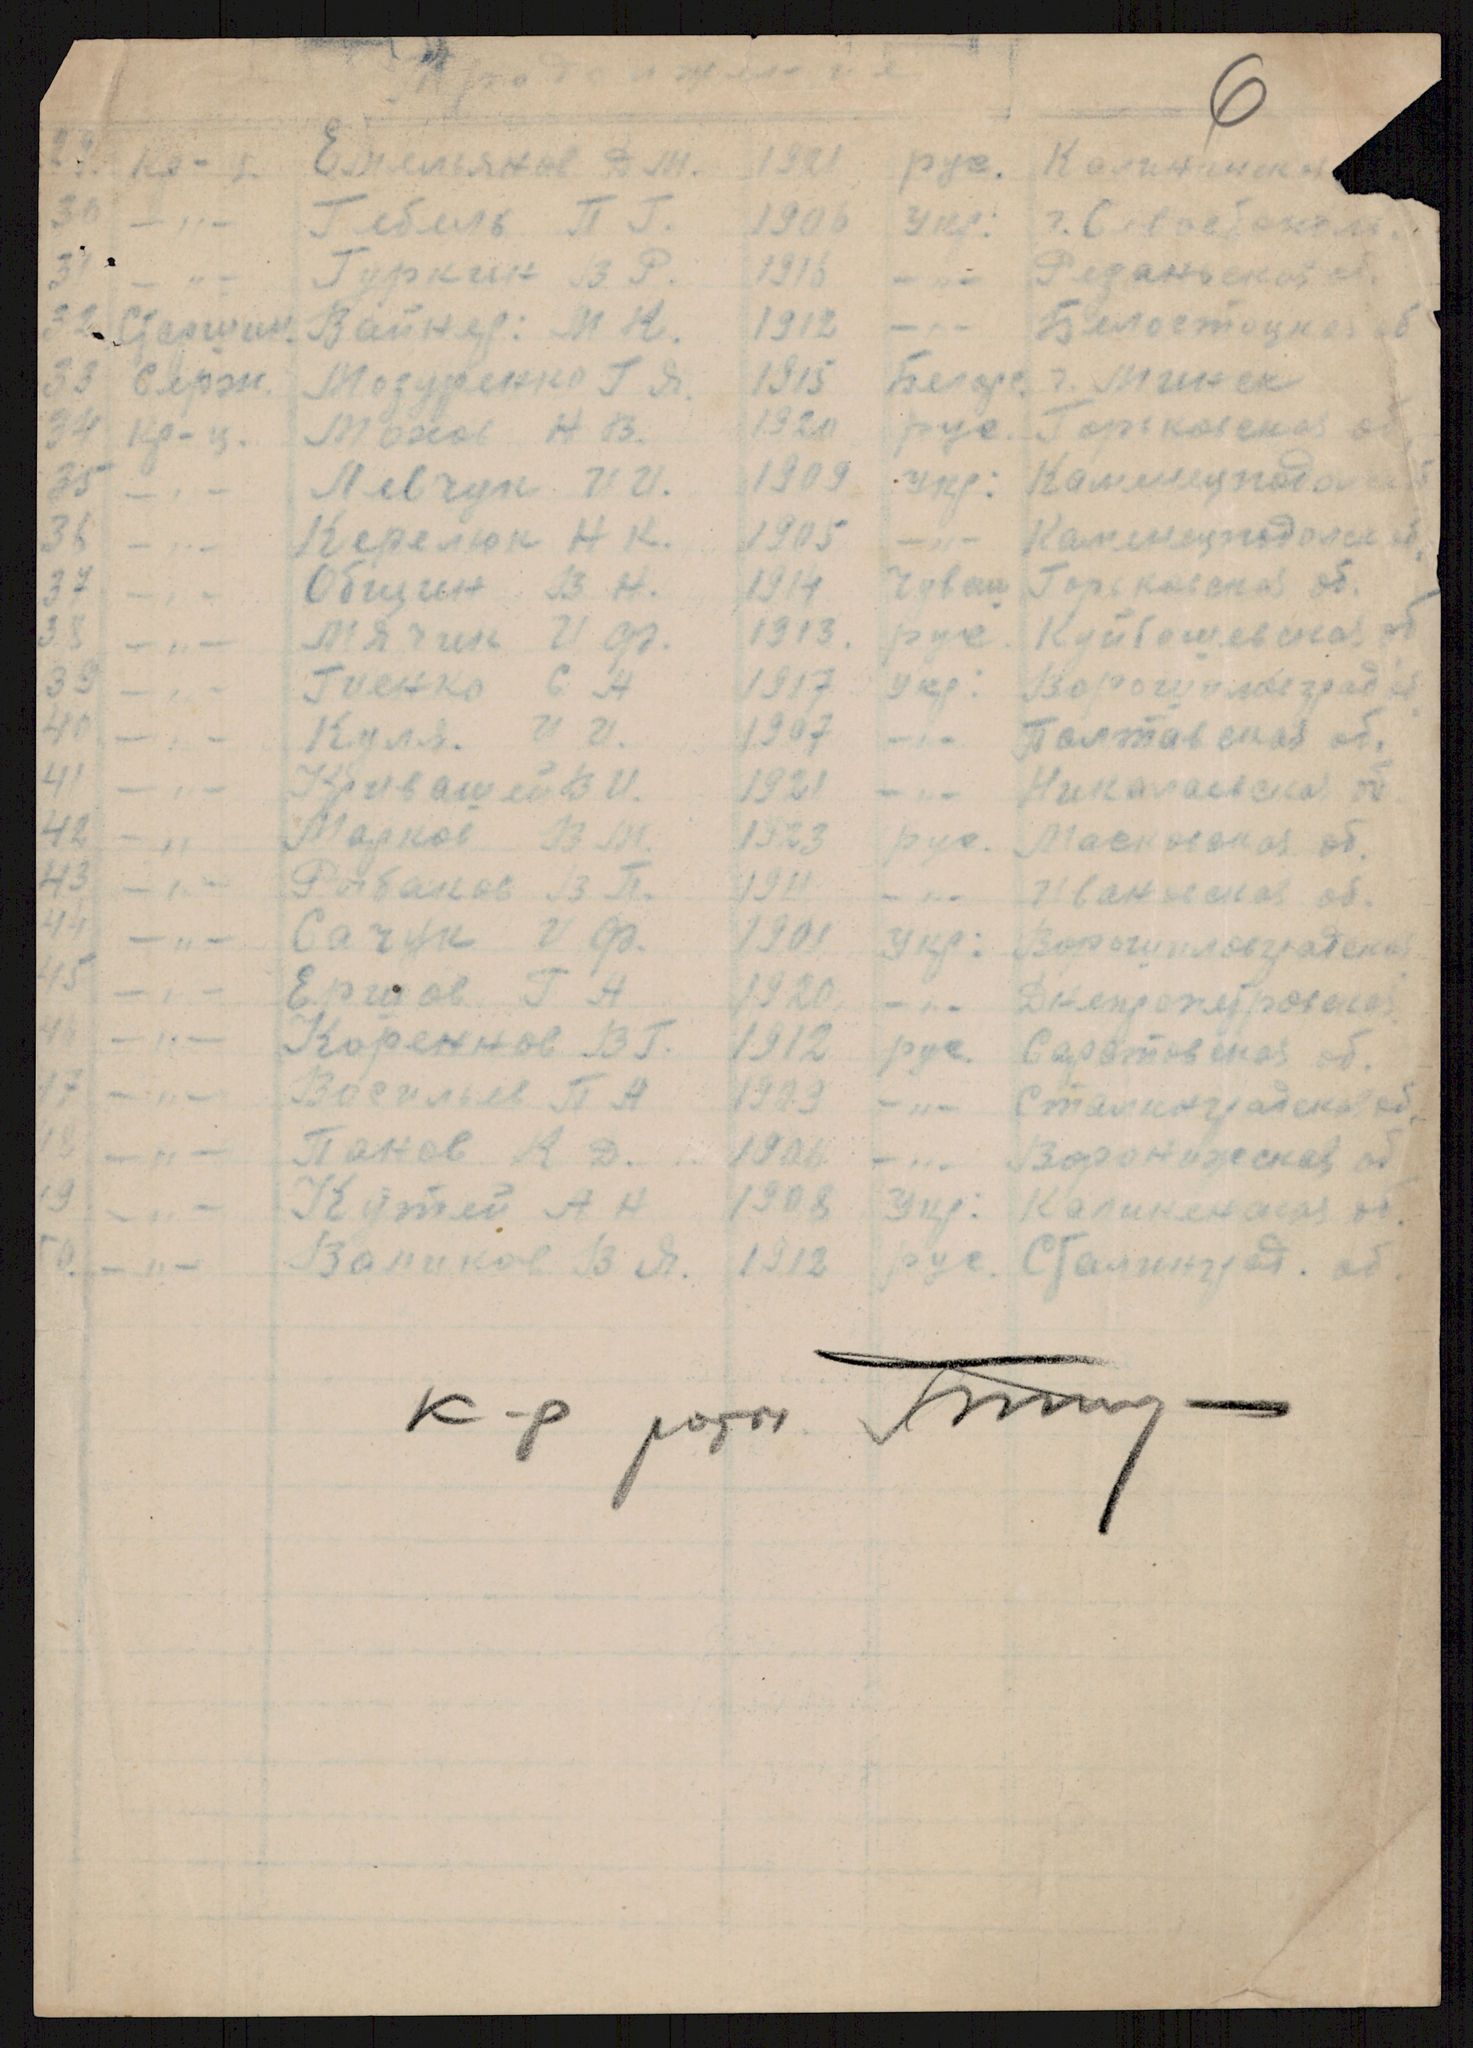 Продолжение
6
29. кр-ц. Емельянов Д М. 1921 рус. Калининска
30 -„- Гебель П Г. 1906 Укр: г. Севастополь.
31 -„- Гуркин В Р. 1916 -„- Резаньская об.
32 Старшин. Вайнер: М К. 1912 -„- Белостоцкая об
33 Серж. Мозуренко Г Я. 1915 Белор. г. Минск
34 кр-ц. Мохов Н В. 1920 рус. Горьковская об.
35 -„- Левчук И И. 1909 Укр:
36 -„- Керелюк Н К. 1905 -„- Каменецподольск об.
37 -„- Общин В Н. 1914 Чуваш Горьковская об.
38 -„- Мячин И Ф. 1913. рус. Куйбышевская об
39 -„- Гиенко С А 1917 укр: Ворошиловград об
40 -„- Куля. И И. 1907 -„- Полтавская об.
41 -„- Кривашей В И. 1921 -„- Николаевская об
42 -„ Марков В М. 1923 рус. Московская об.
43 -„- Рыбаков В П. 1911 -„- Ивановская об.
44 -„- Сачук И Ф. 1901 Укр: Ворошиловградская
45 -„- Ершов Г А 1920 -„- Днепропетровская
46 -„- Кореннов В Г. 1912 рус. Саратовская об.
47 -„- Васильев П А -„- Сталинградская об.
48 -„- Панов К Д. 1906 -„- Воронижская об
49 -„- Кутей А Н 1908 Укр: Калиненская об.
50. -„- В Я. 1912 рус. Сталинград. об.
к-р роты